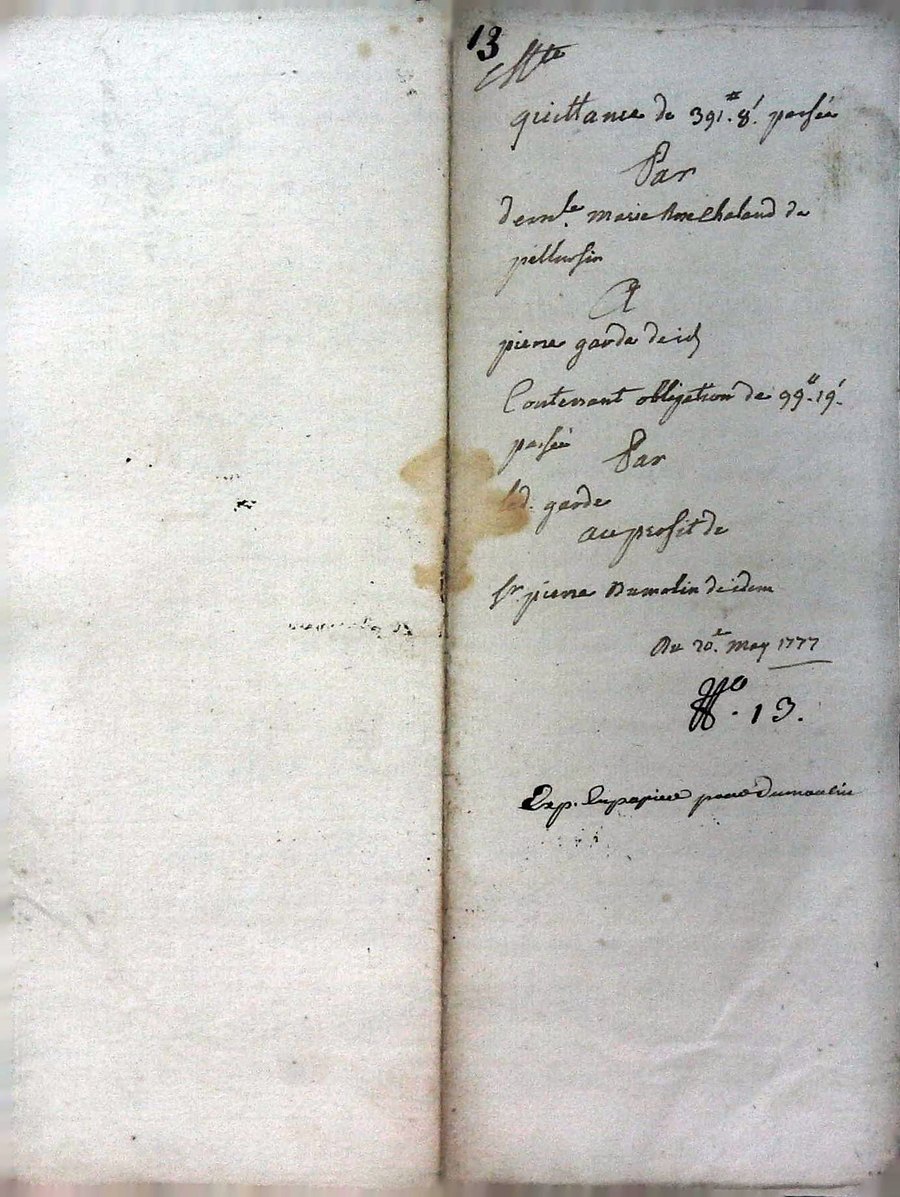 13
quittance de 391.# 8.s passée
Par
dem.le marie Rose Chaland de
pellussin
A
pierre garde de id
Contenant obligation de 99.# 19.s
passée Par
led. garde
au profit de
Sr pierre Dumolin de idem
Du 20.e may 1777
No. 13.
Exp. en papier pour Dumoulin